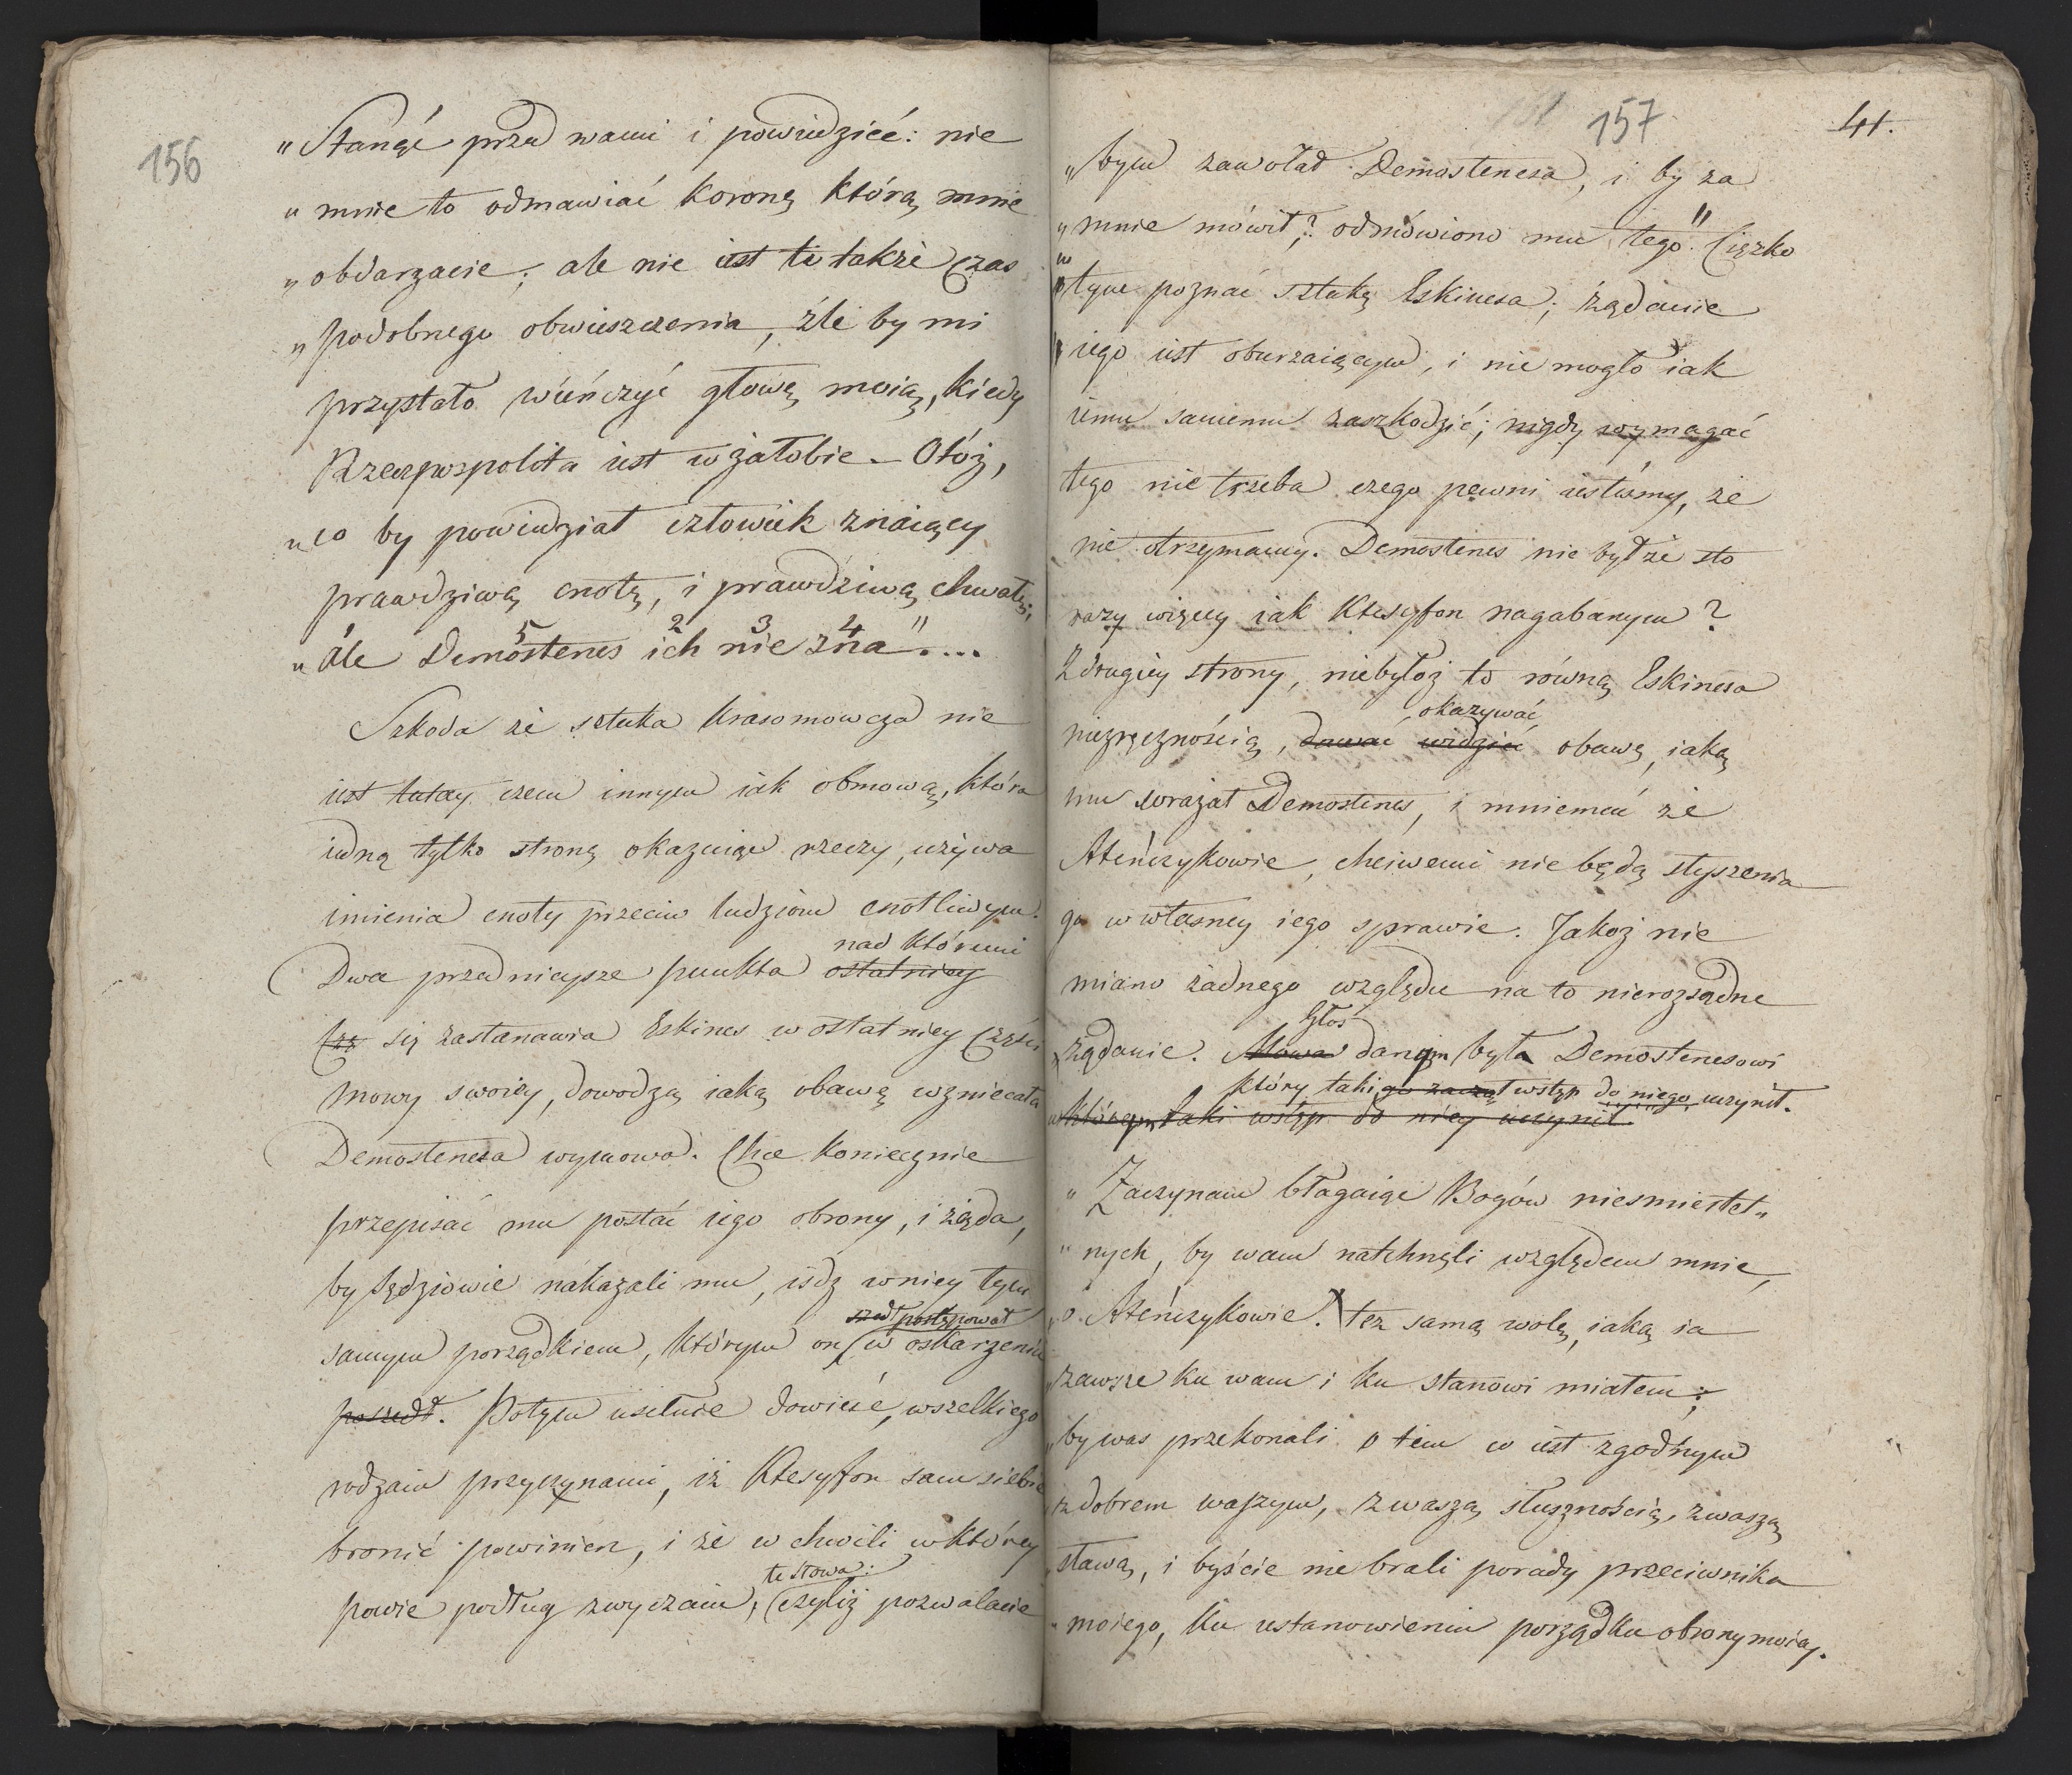 156
„Stanąć przed wami i powiedzieć: nie
„mnie to odmawiać koronę którą mnie
„obdarzacie; ale nie iest to także czas
„podobnego obwieszczenia, źle by mi
przystało wieńczyć głowę moią, kiedy
Rzeczpospolita iest w żałobie. Otóż,
„co by powiedział człowiek znaiący
prawdziwą cnotę, i prawdziwą chwałę;
1 5 2 3 4
„ale Demostenes ich nie zna"....
Szkoda że sztuka krasomowcza nie
iest tutay czem innym iak obmową, która
iedną tylko stronę okazuiąc rzeczy, używa
imienia cnoty przeciw ludziom cnotliwym.
nad któremi
Dwa przednieysze punkta ostatniey
czę się zastanawia Eskines w ostatniey części
mowy swoiey, dowodzą iaką obawę wzniecała
Demostenesa wymowa. Chce koniecznie
przepisać mu postać iego obrony, i żąda,
by Sędziowie nakazali mu, iśdz w niey tym
szedł postępował
samym porządkiem, którym on w oskarżeniu
poszedł. Potym usiłuie dowieść, wszelkiego
rodzaiu przyczynami, iż Ktesyfon sam siebie
bronić powinien, i że w chwili w którey
te słowa:
powie podług zwyczaiu, czyliż pozwalacie
157
41.
„bym zawołał Demostenesa, i by za
„mnie mówił? odmówiono mu tego". Ciężko
tym poznać sztukę Eskinesa; żądanie
iego iest oburzaiącym, i nie mogło iak
iemu samemu zaszkodzić; nigdy wymagać
tego nie trzeba czego pewni iesteśmy, że
nie otrzymamy. Demostenes nie byłże sto
razy więcey iak Ktesyfon nagabanym?
Z drugiey strony, niebyłoż to równą Eskinesa
okazywać
niezręcznością, dawać widzieć obawę, iaką
mu wrażał Demostenes, i mniemać że
Ateńczykowie, chciwemi nie będą słyszenia
go w własney iego sprawie. Jakoż nie
miano żadnego względu na to nierozsądne
Głos
żądanie. Mowa danym była Demostenesowi
który taki go zaczął wstęp do niego uczynił.
w którym taki wstęp do niey uczynił.
„Zaczynam błagaiąc Bogów nieśmiertel„
„nych, by wam natchnęli względem mnie,
„o Ateńczykowie! tez samą wolę, iaką ia
„zawsze ku wam i ku stanowi miałem;
„by was przekonali o tem co iest zgodnym
„z dobrem waszym, z waszą słusznością, z waszą
„sławą, i byście nie brali porady przeciwnika
„moiego, ku ustanowieniu porządku obrony moiey.